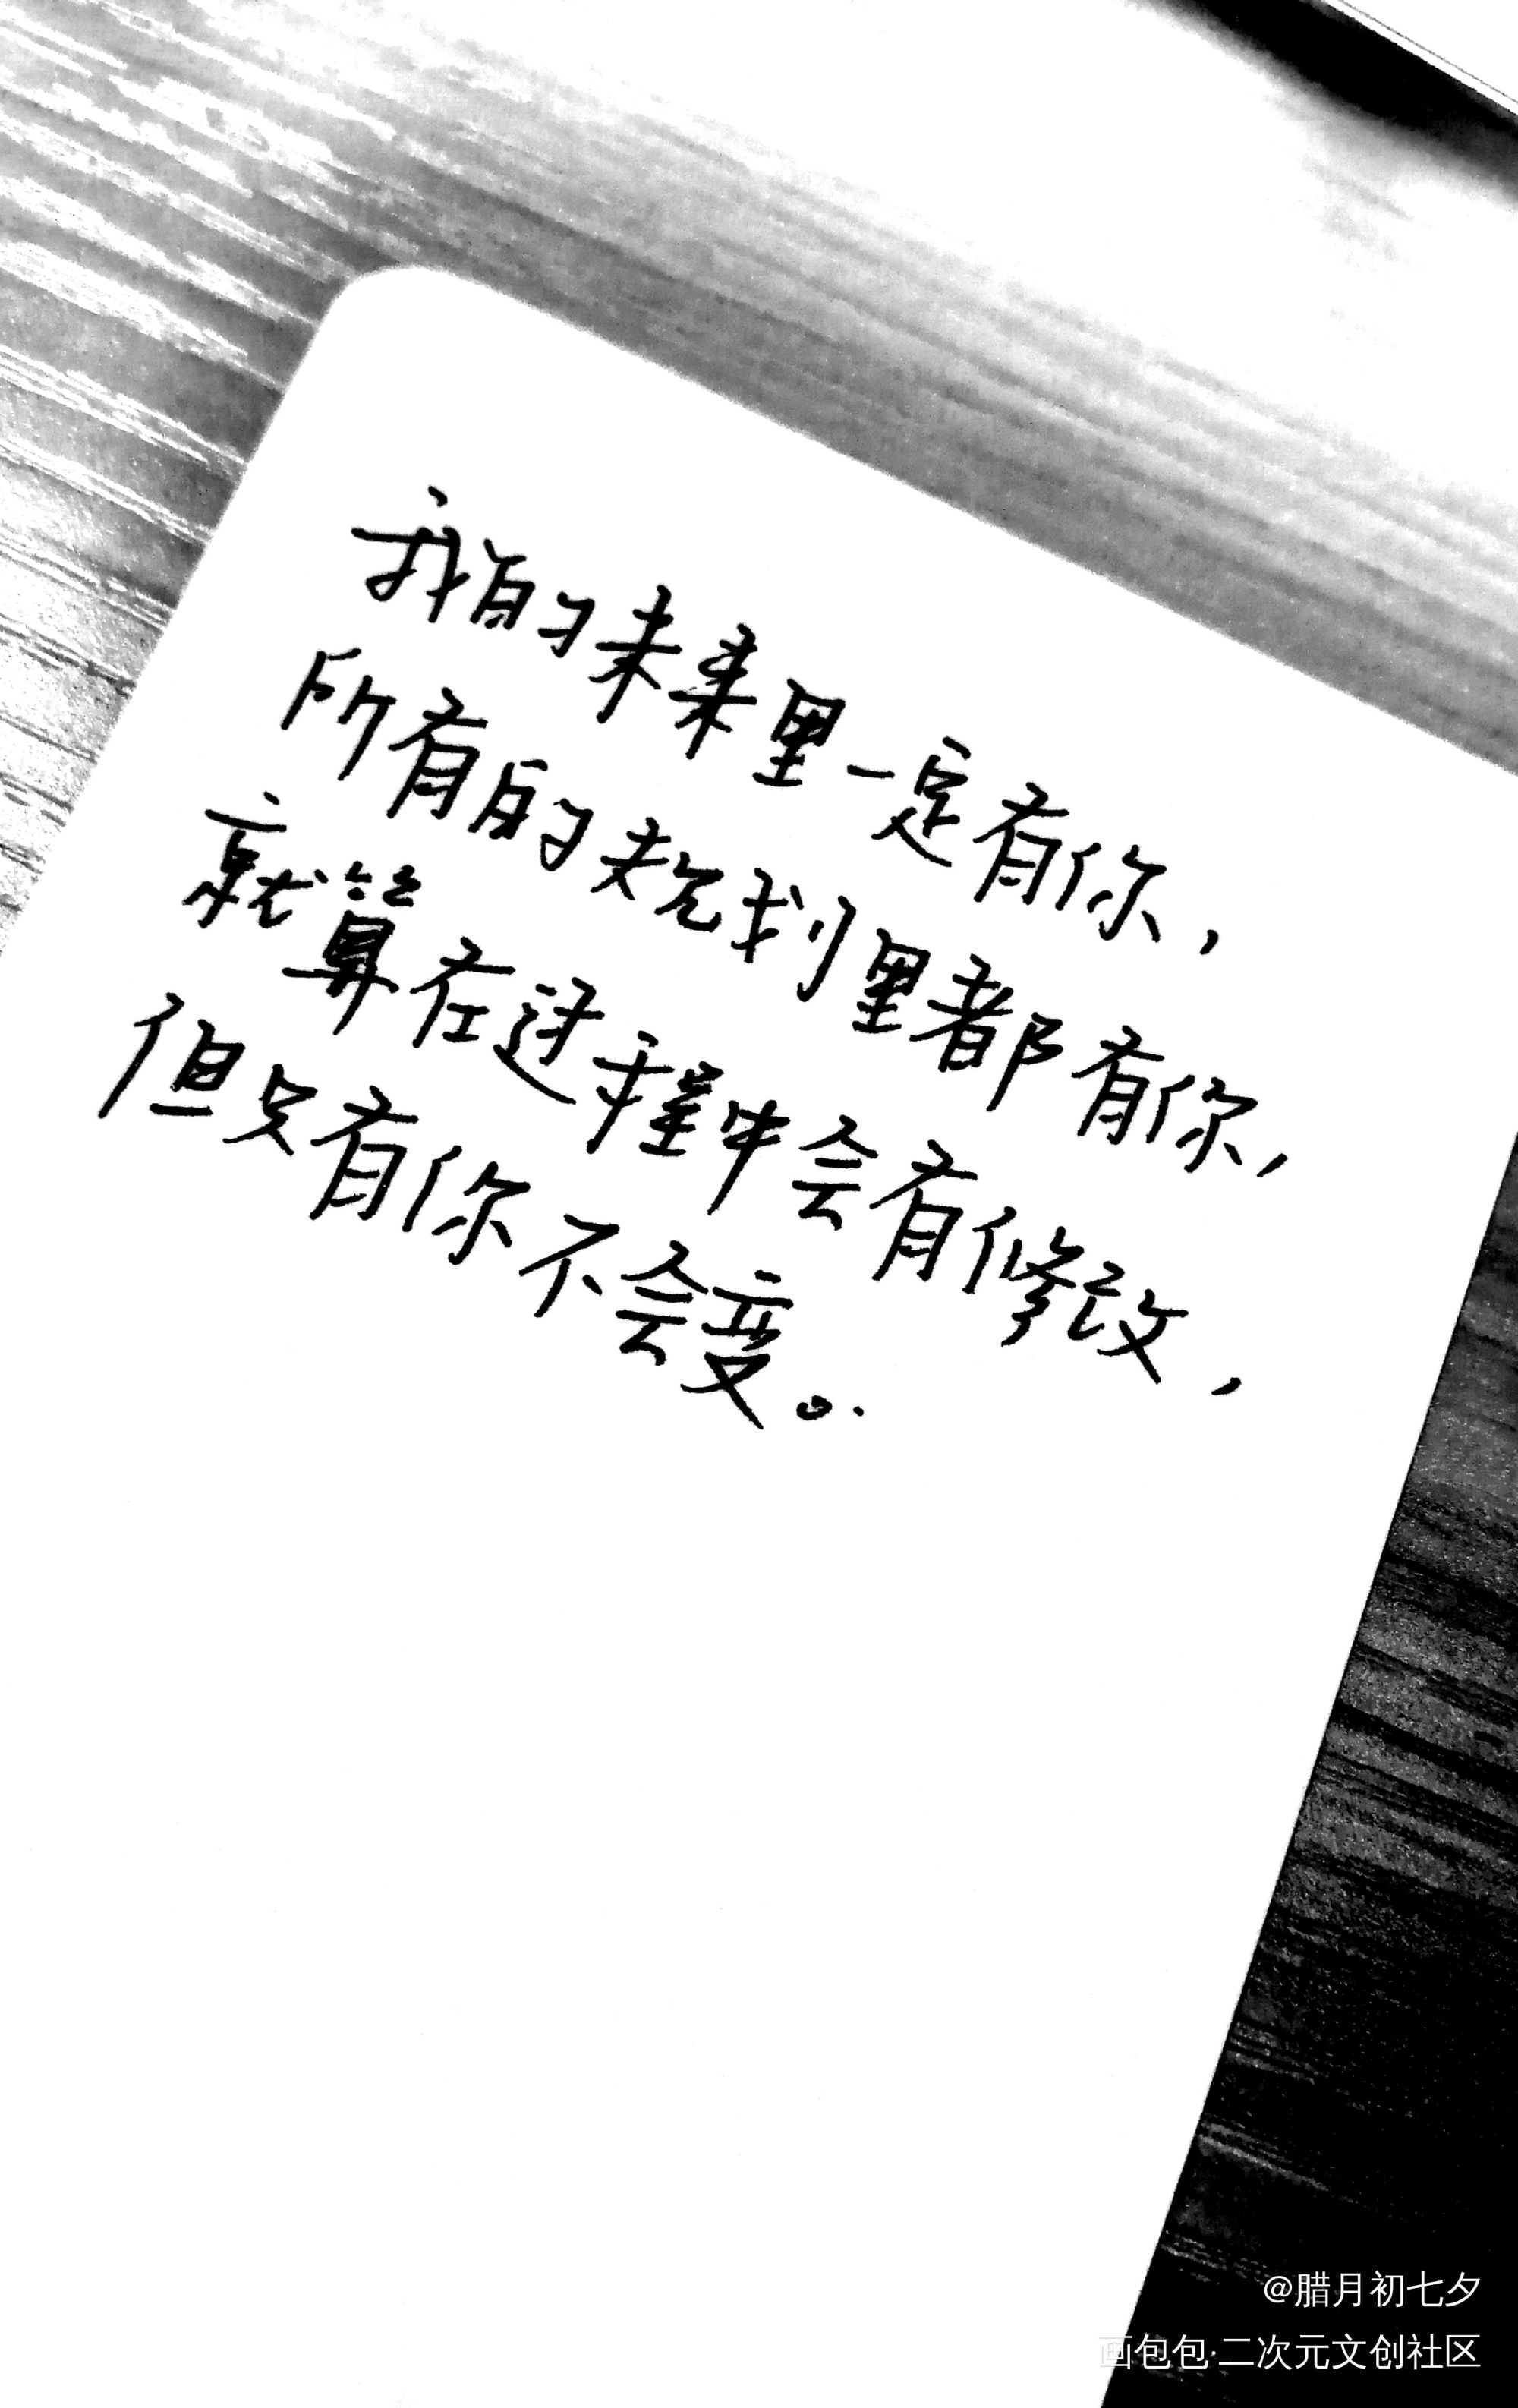 我的未来里一定有你，
所有的规划里都有你，
就算在过程中会有修改，
但只有你不会变。
@腊月初七夕
画包包·二次元文创社区